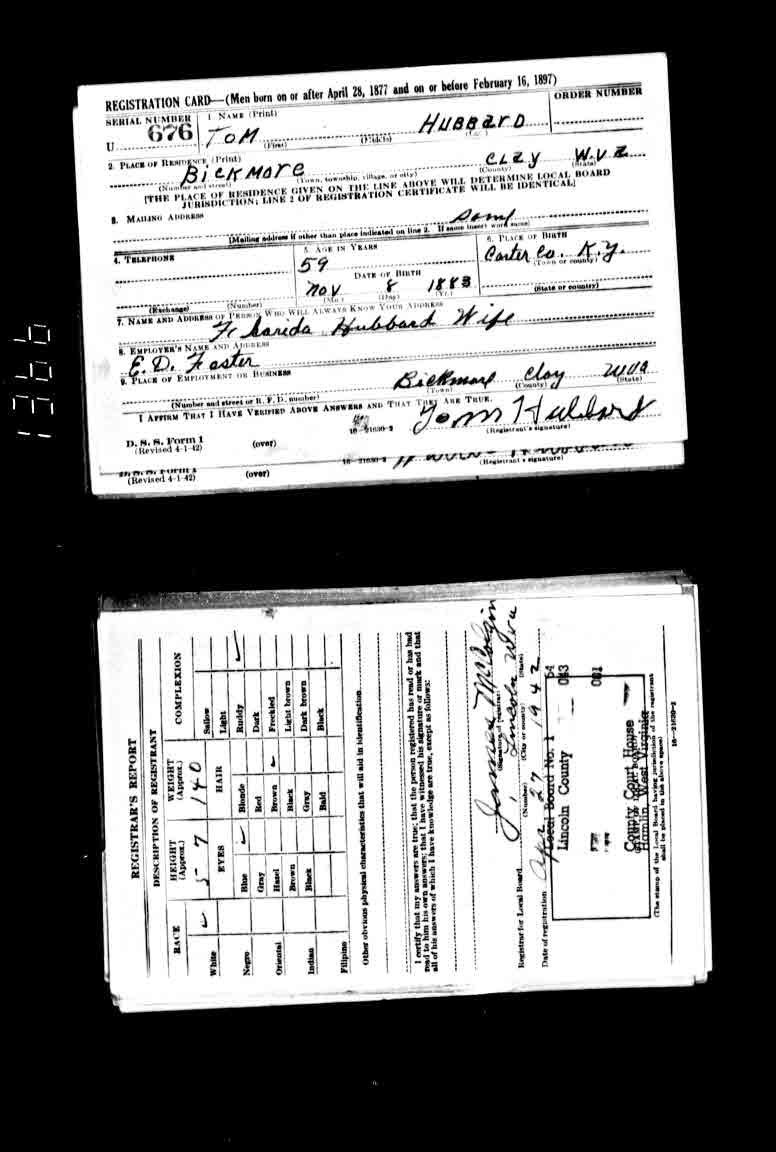 REGISTRATION CARD—(Men born on or after April 28, 1877 and on or before February 16, 1897)
SERIAL NUMBER 1. NAME (Print) ORDER NUMBER
U 676 TOM HUBBARD
(First) (Middle) (Last)
2. PLACE OF RESIDENCE (Print)
BICKMORE CLAY W.VA
(Number and street) (Town, township, village, or city) (County) (State)
[THE PLACE OF RESIDENCE GIVEN ON THE LINE ABOVE WILL DETERMINE LOCAL BOARD
JURISDICTION; LINE 2 OF REGISTRATION CERTIFICATE WILL BE IDENTICAL]
3. MAILING ADDRESS
Same
[Mailing address if other than place indicated on line 2. If same insert word same]
4. TELEPHONE 5. AGE IN YEARS 6. PLACE OF BIRTH
59 Carter Co.
DATE OF BIRTH (Town or county)
Nov 8 1883 K.Y.
(Exchange) (Number) (Mo.) (Day) (Yr.) (State or country)
7. NAME AND ADDRESS OF PERSON WHO WILL ALWAYS KNOW YOUR ADDRESS
Hubbard Wife
8. EMPLOYER'S NAME AND ADDRESS
E. D. Foster
9. PLACE OF EMPLOYMENT OR BUSINESS
Bickmore Clay WVa
(Number and street or R. F. D. number) (Town) (County) (State)
I AFFIRM THAT I HAVE VERIFIED ABOVE ANSWERS AND THAT THEY ARE TRUE.
Tom Hubbard
D. S. S. Form 1 (over) 16—21630-2 (Registrant's signature)
(Revised 4-1-42)
D. S. S. Form 1 (over) 16—21630-2 (Registrant's signature)
(Revised 4-1-42)
1366
REGISTRAR'S REPORT
DESCRIPTION OF REGISTRANT
RACE HEIGHT (Approx.) WEIGHT (Approx.) COMPLEXION
White ✓ 5 7 140 Sallow
EYES HAIR Light
Negro Blue ✓ Blonde Ruddy ✓
Gray Red Dark
Oriental Hazel Brown ✓ Freckled
Brown Black Light brown
Indian Black Gray Dark brown
Bald Black
Filipino
Other obvious physical characteristics that will aid in identification
I certify that my answers are true; that the person registered has read or has had
read to him his own answers; that I have witnessed his signature or mark and that
all of his answers of which I have knowledge are true, except as follows:
James
(Signature of registrar)
Registrar for Local Board 1 Lincoln WVa
(Number) (City or county) (State)
Date of registration Apr 27 1942
Local Board No. 1 54
Lincoln County 043
001
County Court House
Hamlin, West Virginia
(The stamp of the Local Board having jurisdiction of the registrant
shall be placed in the above space)
16—21630-2